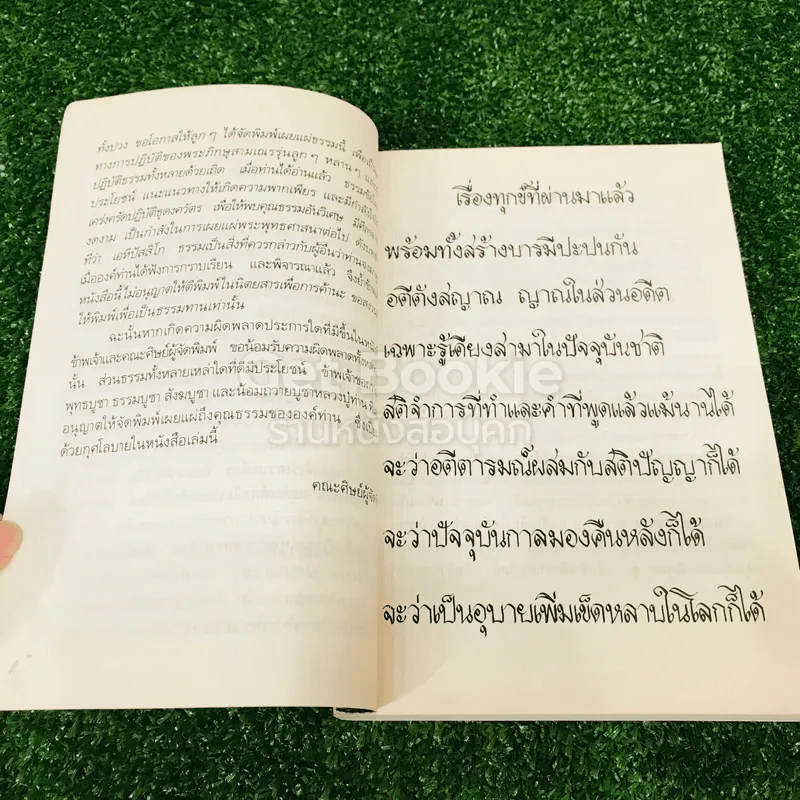 ทั้งปวง ขอโอกาสให้ลูก ๆ ได้จัดพิมพ์เผยแผ่ธรรมนี้ เพื่อเป็น
ทางการปฏิบัติของพระภิกษุสามเณรรุ่นลูก ๆ หลาน ๆ
ปฏิบัติธรรมทั้งหลายด้วยเถิด เมื่อท่านได้อ่านแล้ว
ประโยชน์ แนะแนวทางให้เกิดความพากเพียร และมีกำลังใจ
เคร่งครัดปฏิบัติธุดงควัตร เพื่อให้พบคุณธรรมอันวิเศษ
งดงาม เป็นกำลังในการเผยแผ่พระพุทธศาสนาต่อไป
ที่ว่า เอหิปัสสิโก ธรรมเป็นสิ่งที่ควรกล่าวกับผู้อื่นว่าท่าน
เมื่อองค์ท่านได้ฟังการกราบเรียน และพิจารณาแล้ว
หนังสือนี้ไม่อนุญาตให้ตีพิมพ์ในนิตยสารเพื่อการค้านะ
ให้พิมพ์เพื่อเป็นธรรมทานเท่านั้น
ฉะนั้นหากเกิดความผิดพลาดประการใดที่มีขึ้นใน
ข้าพเจ้าและคณะศิษย์ผู้จัดพิมพ์ ขอน้อมรับความผิดพลาด
นั้น ส่วนธรรมทั้งหลายเหล่าใดที่ดีมีประโยชน์ ข้าพเจ้า
พุทธบูชา ธรรมบูชา สังฆบูชา และน้อมถวายบูชาหลวงปู่ท่าน
อนุญาตให้จัดพิมพ์เผยแผ่ถึงคุณธรรมขององค์ท่าน
ด้วยกุศโลบายในหนังสือเล่มนี้
คณะศิษย์ผู้จัด
เรื่องทุกข์ที่ผ่านมาแล้ว
พร้อมทั้งสร้างบารมีปะปนกัน
อตีตังสญาณ ญาณในส่วนอดีต
เฉพาะรู้เคียงสามาในปัจจุบันชาติ
Get Bookie
สติจำการที่ทำและคำที่พูดแล้วแม้นานได้
ร้านหนังสือบุ๊คกี้
จะว่าอตีตารมณ์ผสมกับสติปัญญาก็ได้
จะว่าปัจจุบันกาลมองคืนหลังก็ได้
จะว่าเป็นอุบายเพิ่มเข็ดหลาบในโลกก็ได้